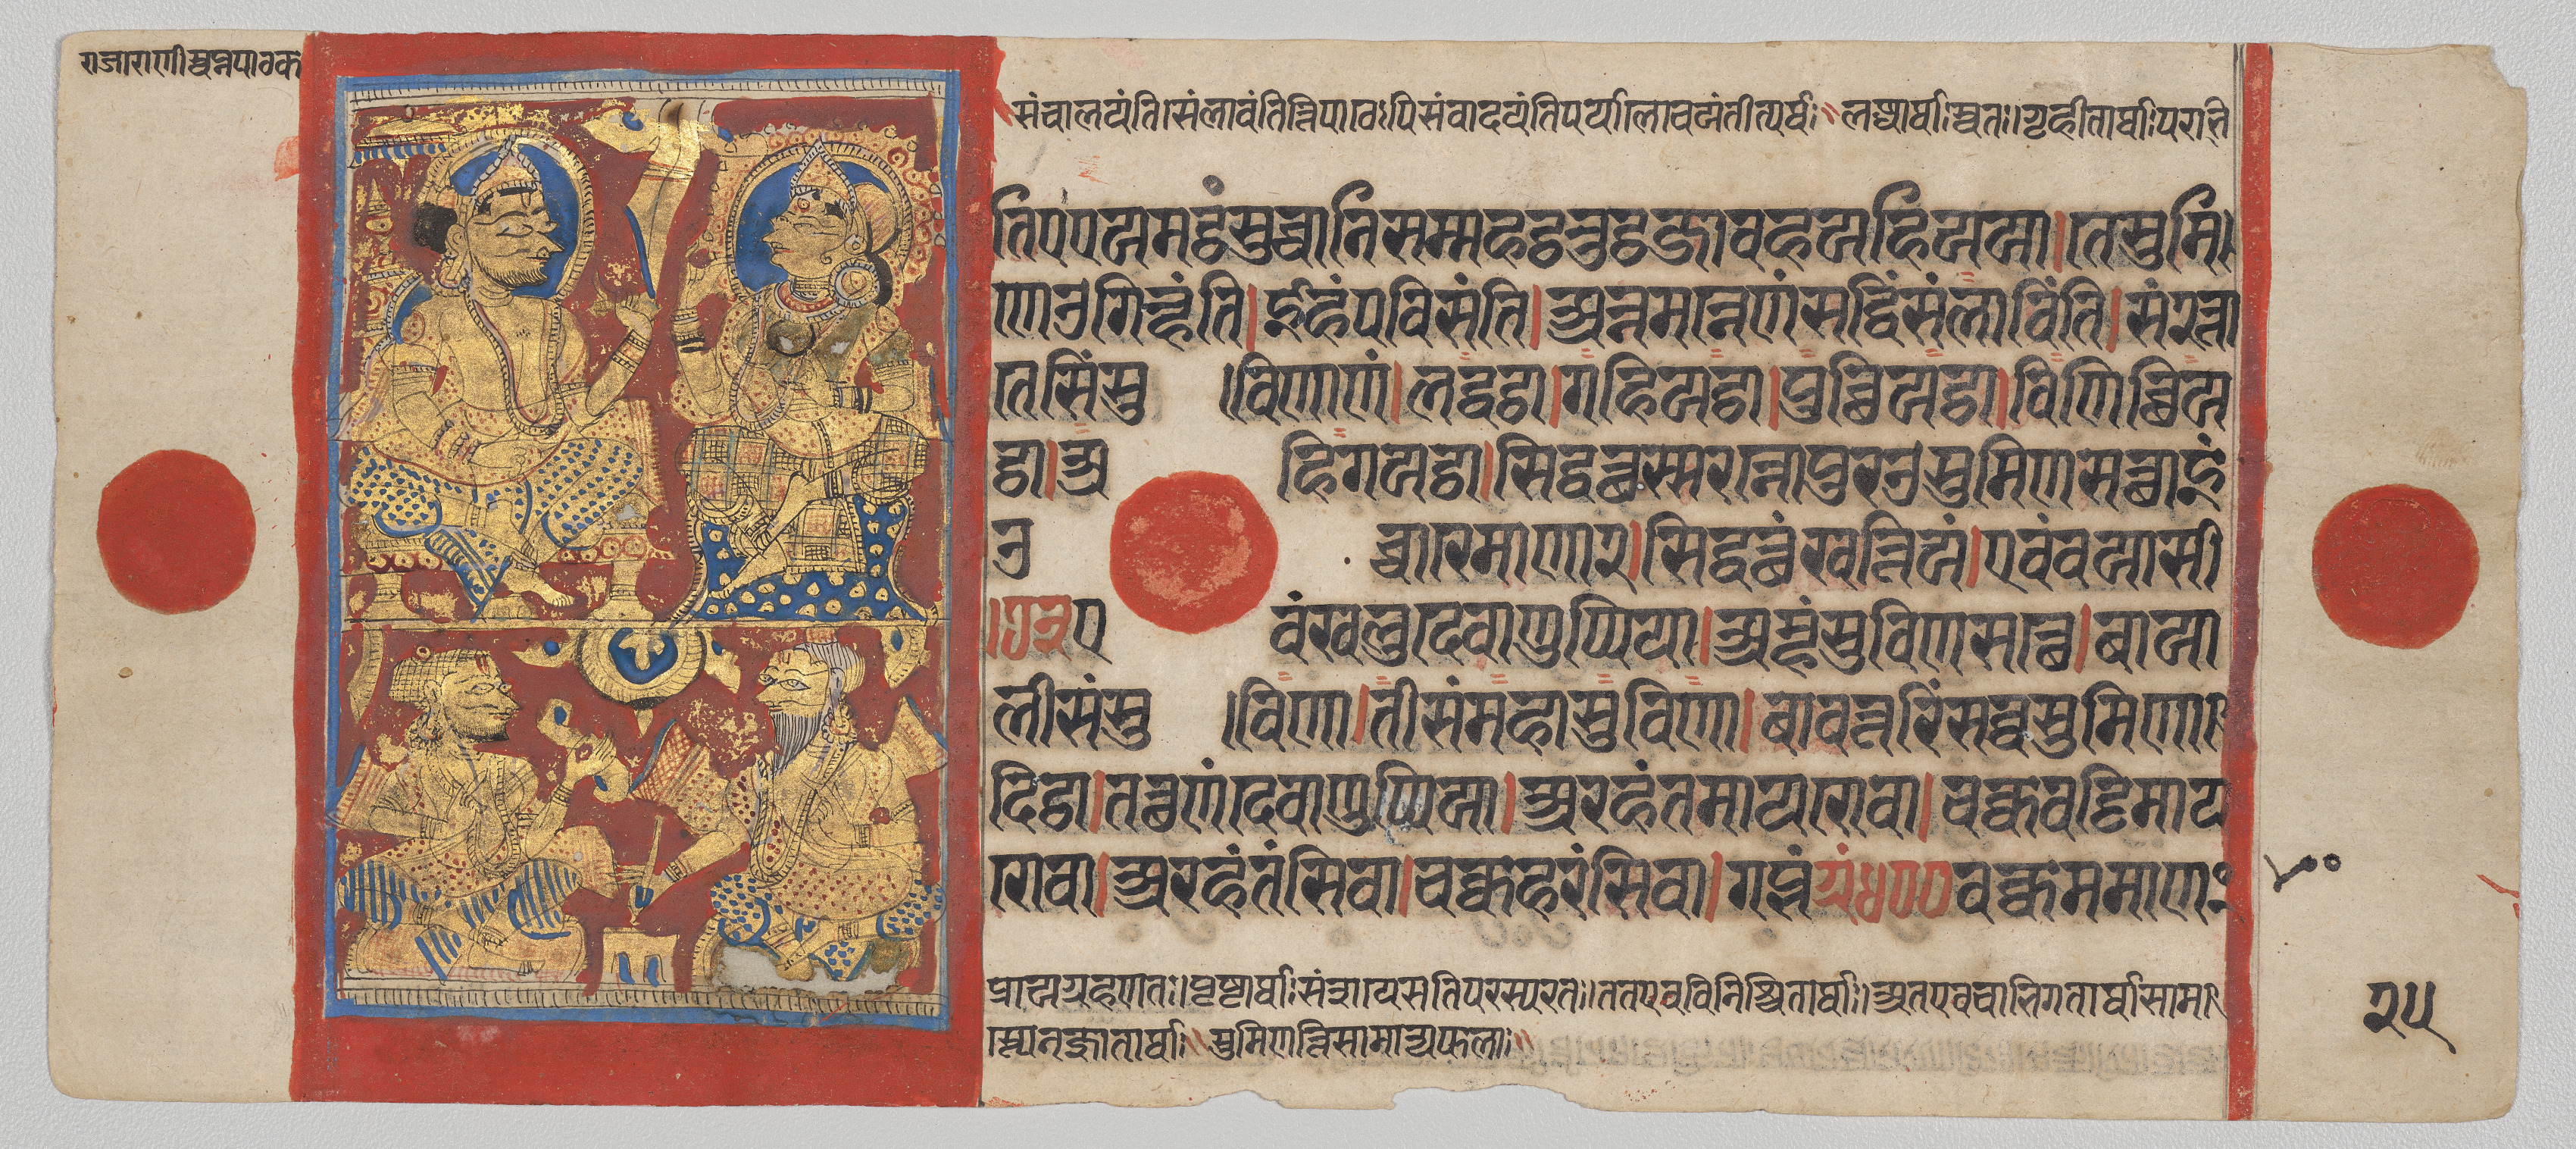 राजाराणीस्वप्नपाठक
संचालयंति।संलावंतित्तिपा०वःपिसंवादयंतिपर्यालोचयंतीत्यर्थः॥लब्धार्थाःस्वतः।गृहीतार्थाःपराभि
तिएएयमट्ठंसुच्चानिसम्महट्ठतुट्ठजावहयहिययातेसुमि
णेउगिन्हंति।ईहंपविसंति।अन्नमन्नेणंसद्धिंसंलाविंति।सं२त्ता
तेसिंसु विणाणं।लद्धट्ठा।गहियट्ठा।पुच्छियट्ठा।विणिच्छिय
ट्ठा।अ हिगयट्ठा।सिद्धत्थस्सरन्नोपुरउसुमिणसत्थाइं
उ च्चारेमाणा२।सिद्धत्थंखत्तियं।एवंवयासी
।७२ए वंखलुदेवाणुप्पिया।अम्हंसुविणसत्थे।बाया
लीसंसु विणा।तीसंमहासुविणा।बावत्तरिंसव्वसुमिणा
दिट्ठा।तत्थणंदेवाणुप्पिया।अरहंतमायरोवा।चक्कवट्टिमाय
रोवा।अरहंतंसिवा।चक्कहरंसिवा।गप्भंग्रं५००वक्कममाणं
४००
प्रायग्रहणतः।पृष्टार्थाःसंशयेसतिपरस्परतः।ततएवविनिश्चितार्थाः।अतएवचाभिगतार्था
सुमिणत्तिसामान्यफलाः॥
२५